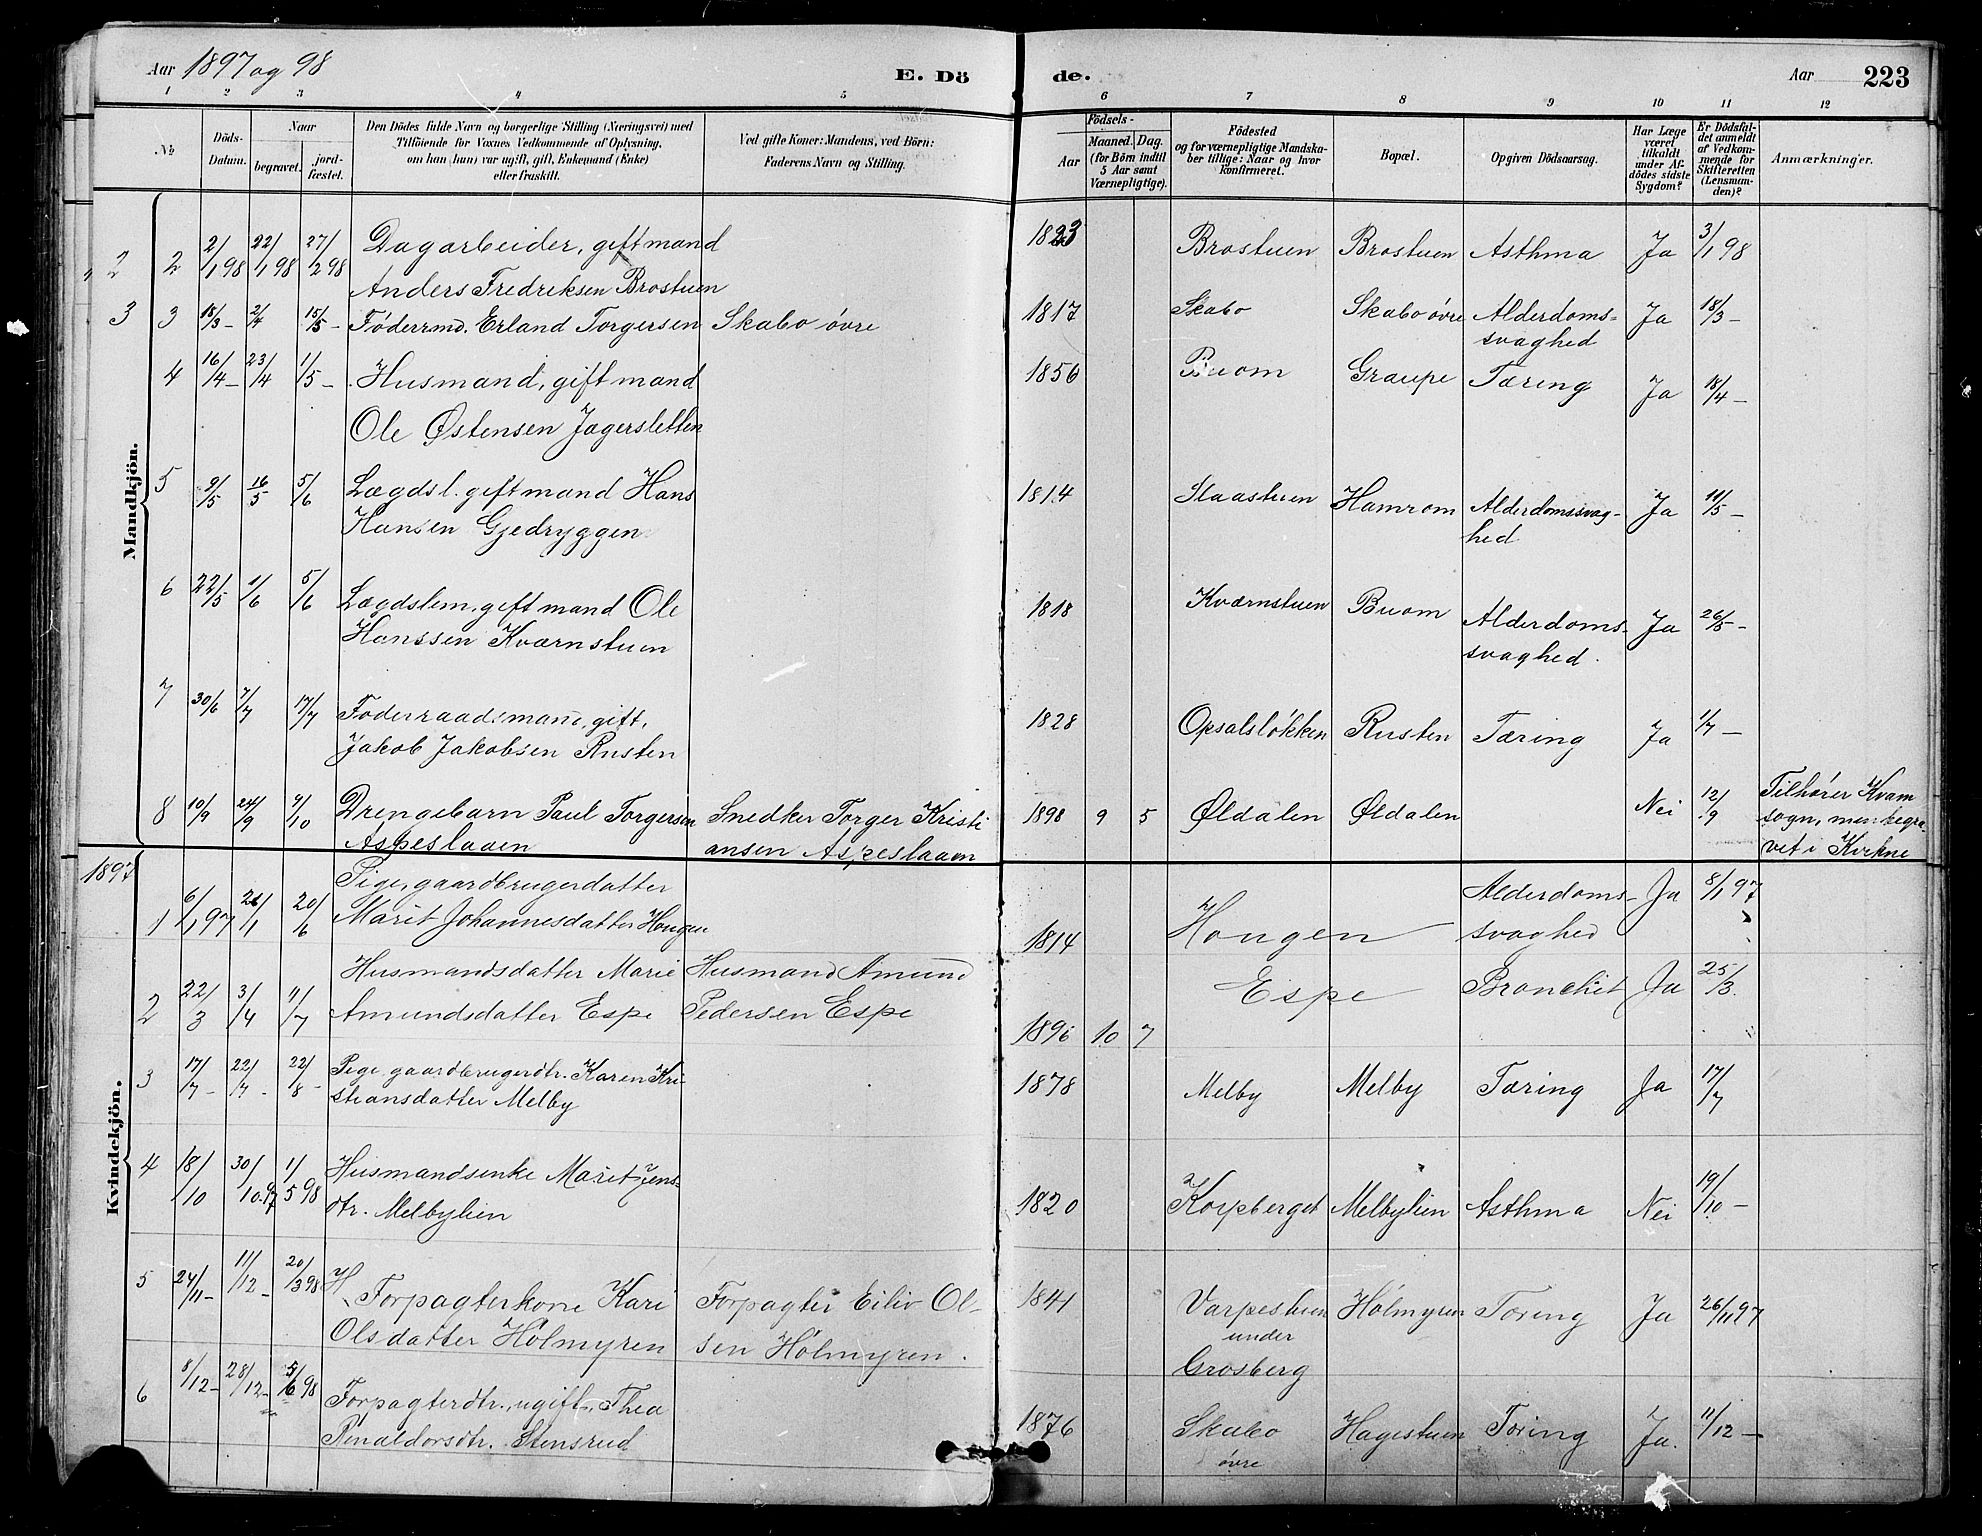 Aar 1897 og 98
E. Dö
de.
Aar
223
1 2 3 4 5 6 7 8 9 10 11 12
No
Döds-Datum.
Naar
begravet.
jordfæstet.
Den Dödes fulde Navn og borgerlige Stilling (Næringsvei) med
Tilföiende for Voxnes Vedkommende af Oplysning,
om han (hun) var ugift, gift, Enkemand (Enke)
eller fraskilt.
Ved gifte Koner: Mandens, ved Börn:
Faderens Navn og Stilling.
Födsels-
Aar
Maaned. Dag.
(for Börn indtil
5 Aar samt
Værnepligtige).
Födested
og for værnepligtige Mandskaber tillige: Naar og hvor
konfirmeret.
Bopæl.
Opgiven Dödsaarsag.
Har Læge
været
tilkaldt
under Afdödes sidste
Sygdom?
Er Dödsfaldet anmeldt
af Vedkommende for
Skifteretten
(Lensmanden)?
Anmærkninger.
Mandkjön.
2 2 2/1 98 22/1 98 27/2 98 Dagarbeider, gift mand 1823 Brostuen Brostuen Asthma Ja 3/1 98
Anders Fredriksen Brostuen
3 3 15/3 - 2/4 15/5 - Föderrmd. Erland Torgersen Skabo övre 1817 Skabo Skabo övre Alderdoms- Ja 18/3 -
svaghed
4 16/4 - 23/4 1/5 - Husmand, gift mand 1856 Buom Graupe Tæring Ja 18/4 -
Ole Østensen Jagersletten
5 9/5 16/5 5/6 Lægdsl. gift mand Hans 1814 Slaastuen Hamrom Alderdomssvag- Ja 11/5 -
Hansen Gjedryggen hed
6 22/5 1/6 5/6 Lægdslem, gift mand Ole 1818 Kværnstuen Buom Alderdoms- Ja 26/5 -
Hanssen Kværnstuen svaghed.
7 30/6 7/7 17/7 Föderraadsmand, gift, 1828 Opsalslökken Rusten Tæring Ja 1/7 -
Jakob Jakobsen Rusten
8 10/9 24/9 9/10 Drengebarn Paul Torgersen Snedker Torger Kristi 1898 9 5 Øldalen Øldalen Nei 12/9 Tilhører Kvam
Aspeslaaen ansen Aspeslaaen sogn, men begra-
vet i Kvikne
1897
Kvindekjön.
Pige, gaardbrugerdatter Alderdoms- Ja 8/1 97
1 6/1 97 26/1 20/6 Marit Johannesdatter Hougen 1814 Hougen svaghed
Husmandsdatter Marie Husmand Amund Espe Bronchit Ja 25/3
2 22/3 3/4 11/7 Amundsdatter Espe Pedersen Espe 1896 10 7
3 17/7 - 22/7 - 22/8 - Pige, gaardbrugerdtr. Karen Kri- 1878 Melby Melby Tæring Ja 17/7
stiansdatter Melby
4 18/10 30/10 97 1/5 98 Husmandsenke Marit Jens- 1820 Korpberget Melbylien Asthma Nei 19/10 -
dtr. Melbylien
5 24/11 - 11/12 - 20/3 98 H Forpagterkone Kari Forpagter Eiliv Ol- 1841 Varpestuen Hölmyren Tæring Ja 26/11 97
Olsdatter Hölmyren sen Hölmyren. under
Grosberg
6 8/12 - 28/12 - 5/6 98 Forpagterdtr., ugift, Thea 1876 Skabo Hagestuen Tæring Ja. 11/12 -
Rinaldorsdtr. Stensrud övre